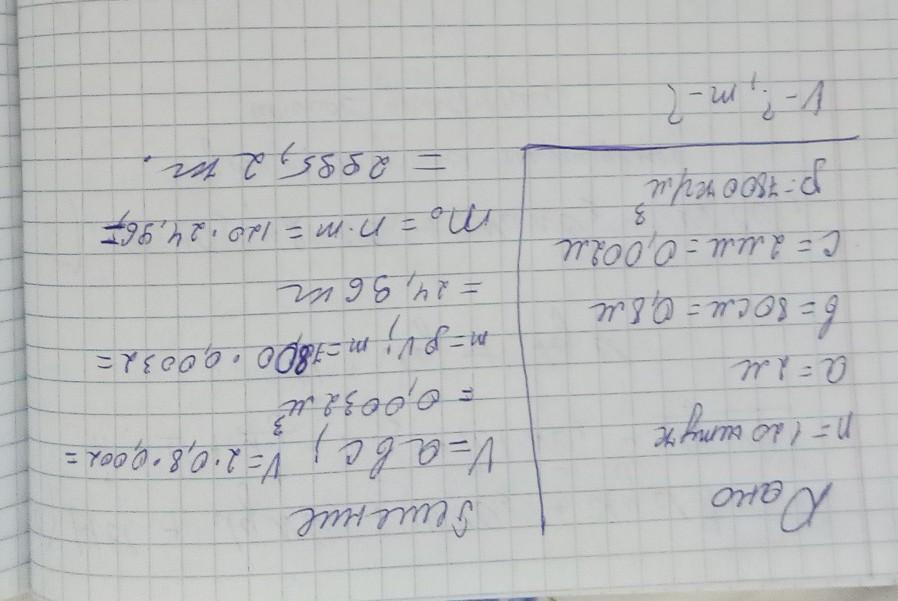 Дано
n=120 штук
a=2м
b=80см=0,8м
c=2мм=0,002м
ρ=7800кг/м³
V-?, m-?
Решение
V=abc; V=2·0,8·0,002=
=0,0032м³
m=ρV; m=7800·0,0032=
=24,96кг
m₀=n·m=120·24,96=
=2995,2 кг.